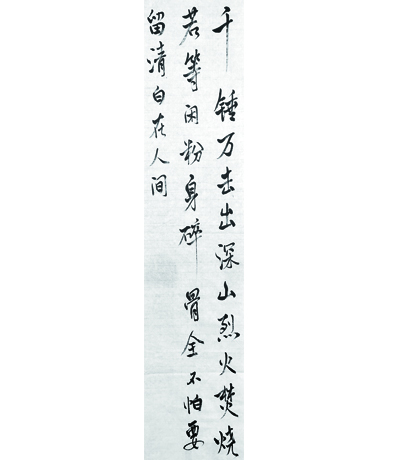 千锤万击出深山烈火焚烧
若等闲粉身碎骨全不怕要
留清白在人间